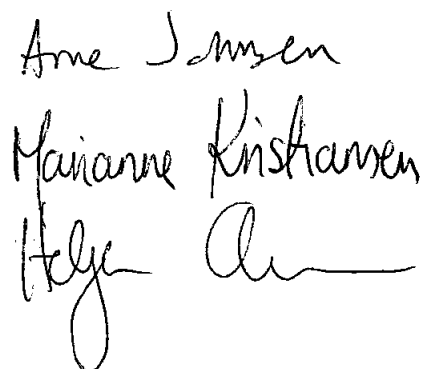 Arne Johnsen
Marianne Kristiansen
Helge